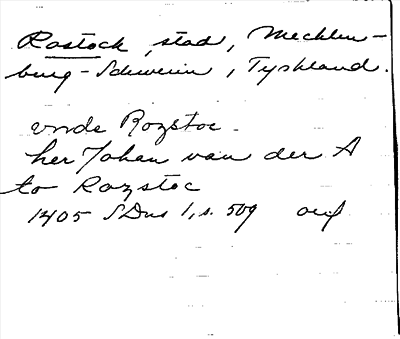 Rostock, stad, Mecklen-
burg-Schwerin, Tyskland.
vnde Rozstoc
her Johan van der A
to Rozstoc
1405 SDns 1, s. 509 orig